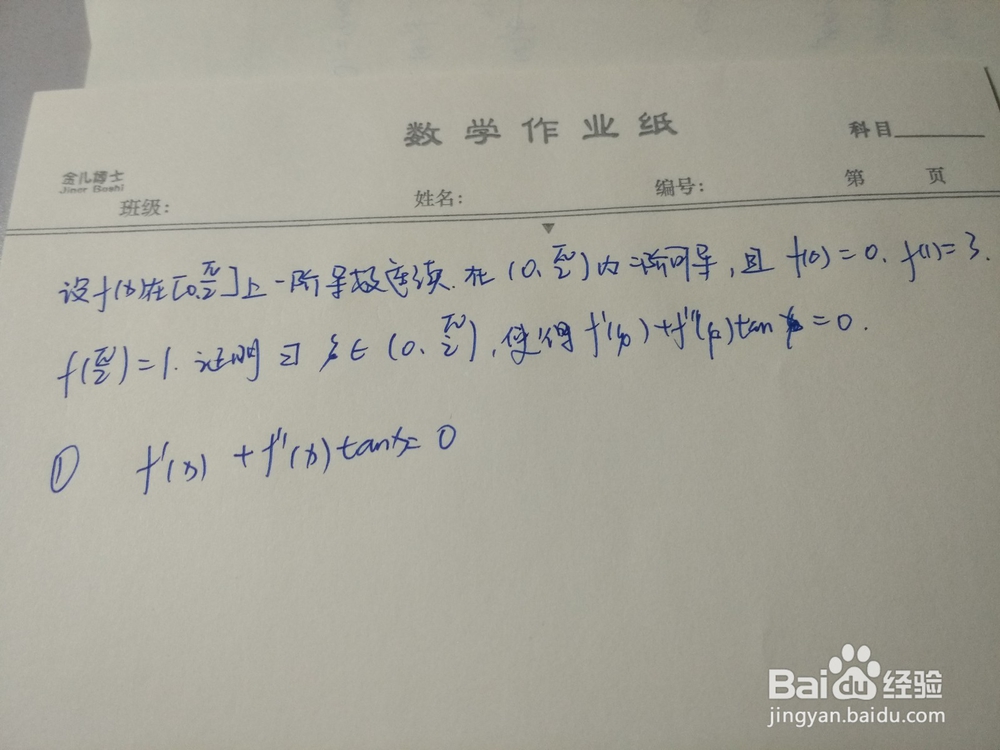 数学作业纸
科目
金儿博士
Jiner Boshi
班级:
姓名:
编号:
第 页
设f(x)在[0,π/2]上一阶导数连续.在(0,π/2)内二阶可导,且f(0)=0.f(1)=3.
f(π/2)=1.证明∃ξ∈(0,π/2),使得f'(ξ)+f''(ξ)tanξ=0.
① f'(x)+f''(x)tanx=0
Baidu经验
jingyan.baidu.com